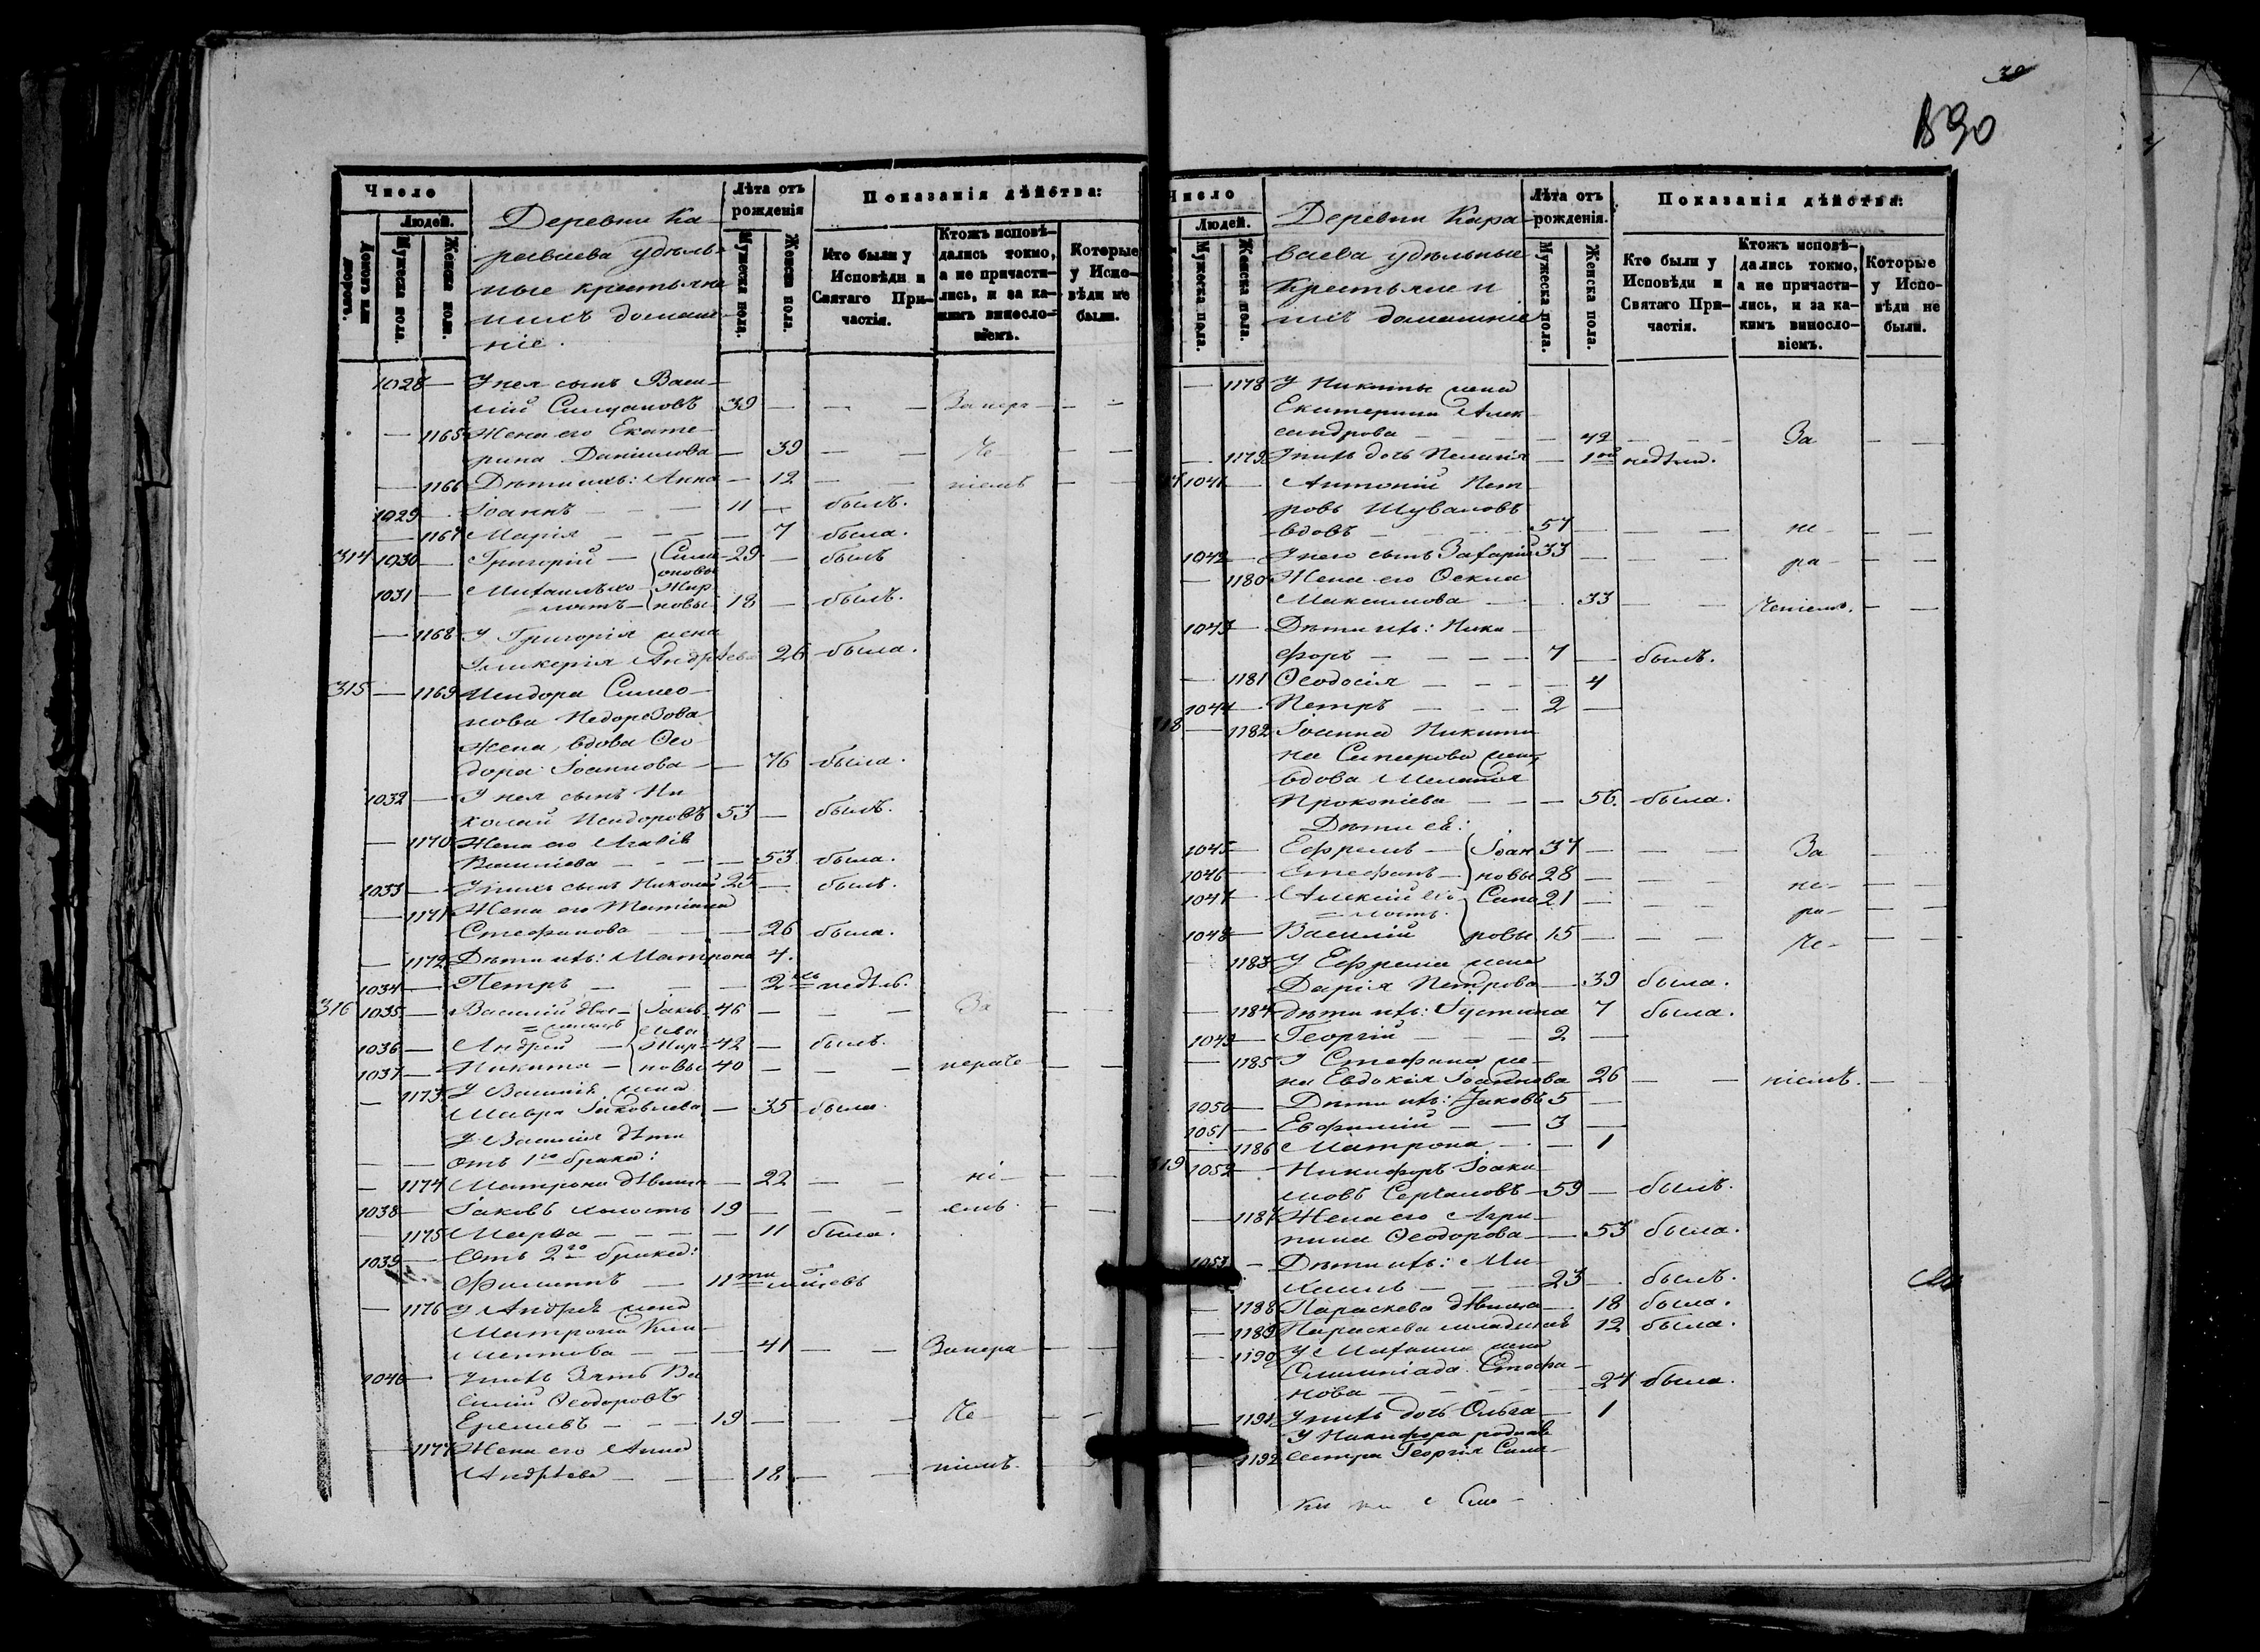 30
890
Число
Людей.
Домовъ или дворовъ.
Мужеска пола.
Женска пола.
Деревни Ка-
раваева удѣль-
ные крестьяне
и ихъ домаш-
ніе.
Лѣта отъ
рожденія
Мужеска пола.
Женска пола.
Показанія дѣйства:
Кто были у
Исповѣди и
Святаго При-
частія.
Ктожъ исповѣ-
дались токмо,
а не причасти-
лись, и за ка-
кимъ виносло-
віемъ.
Которые
у Испо-
вѣди не
были.
1028 — У нея сынъ Васи-
лій 39 — — — За нера — —
— 1165 Жена его Екате-
рина Даніилова — 39 — — че — —
— 1166 Дѣти ихъ: Анна — 12 — — ніемъ — —
1029 — Іоаннъ — — — 11 — былъ.
— 1167 Марія — — — — 7 была.
314 1030 — Григорій — 29 — былъ
1031 — 18 — былъ.
— 1168 У Григорія жена
Гликерія Андрѣева 26 была.
315 — 1169 Исидора Симео-
нова Недорезова
жена, вдова Ѳео-
дора Іоаннова — — 76 была.
1032 — У нея сынъ Ни
колай Исидоровъ 53 — былъ.
— 1170 Жена его
Василіева — — — — 53 была.
1033 — У нихъ сынъ Николай 25 — былъ.
— 1171 Жена его Татіана
Стефанова — — 26 была.
— 1172 Дѣти ихъ: Матрона 4.
1034 — Петръ — — — 2 недѣль.
316 1035 — Василій Іаков 46 — — — За — —
1036 — Андрей — 42 — былъ.
1037 — Никита — новы 40 — — — нераче — —
— 1173 У Василія жена
Мавра Іаковлева — 35 была.
У Василія дѣти
— — отъ 1го брака:
— 1174 Матрона дѣвица — 22 — — ні — —
1038 — Іаковъ холостъ 19 — — — емъ. — —
— 1175 Марѳа — — — — 11 была.
1039 — Отъ 2го брака:
Филиппъ — 11ти
— 1176 У Андрея жена
Матрона Кли-
ментова — — — 41 — — За нера — —
1040 — У нихъ зять Ва
силій Ѳеодоровъ
— — — 19 — — — че — —
— 1177 Жена его Анна
Андрѣева — — — 18 — — ніемъ. —
Число
Людей.
Мужеска пола.
Женска пола.
Деревни Кара
ваева удѣльные
крестьяне и
ихъ домашніе
Лѣта отъ
рожденія.
Мужеска пола.
Женска пола.
Показанія дѣйства:
Кто были у
Исповѣди и
Святаго При-
частія.
Ктожъ исповѣ-
дались токмо,
а не причасти-
лись, и за ка-
кимъ виносло-
віемъ.
Которые
у Испо-
вѣди не
были.
— 1178 У Никиты жена
Екатерина Алек
сандрова — — — — 42 — — За — —
— 1179 У нихъ дочь Пелагія — 1ой недѣли.
1041 — Антоній Пет
ровъ Шуваловъ
вдовъ — — — — 57 — — — не — —
1042 — У него сынъ Захарій 33 — — — ра — —
— 1180 Жена его Ѳекла
Максимова — — 33 — — ченіемъ. — —
1043 — Дѣти ихъ: Ники
форъ — — — — 7 — былъ.
— 1181 Ѳеодосія — — — — 4
1044 — Петръ — — — 2 —
18 — 1182 Іоанна Никити
на жена,
вдова Меланія
Прокопіева — — — 56. была.
Дѣти ея:
1045 — Ефремъ — Іоан 37 — — — За — —
1046 — Стефанъ — новы 28 — — — не — —
1047 — Алексій 21 — — — ра — —
1048 — Василій ровы 15 — — — че — —
— 1183 У Ефрема жена
Дарія Петрова — 39 была.
— 1184 дѣти ихъ: Іустина 7 была.
1049 — Георгій — — — 2 —
— 1185 У Стефана же-
на Евдокія Іоаннова 26 — — ніемъ. — —
1050 — Дѣти ихъ: Іаковъ 5 —
1051 — Евфимій — — 3 —
— 1186 Матрона — — 1
319 1052 — Никифоръ Іоаки
мовъ — 59 — былъ.
— 1187 Жена его Агри-
пина Ѳеодорова — — 53 была.
1053 — Дѣти ихъ: Ми-
хаилъ — — 23 — былъ.
— 1188 Параскева дѣвица — 18 была.
— 1189 Параскева младшая 12 была.
— 1190 У Михаила жена
Олимпіада Стефа-
нова — — — — 24 была.
— 1191 У нихъ дочь Ольга — 1
У Никифора родная
— 1192 сестра